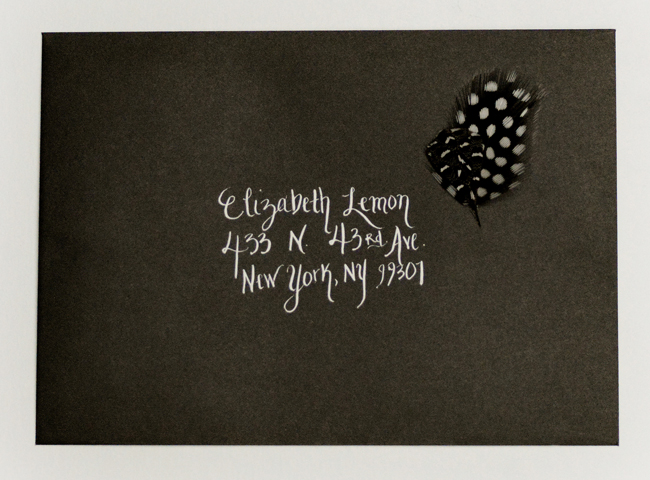 Elizabeth Lemon
433 N. 43rd Ave.
New York, NY 99301